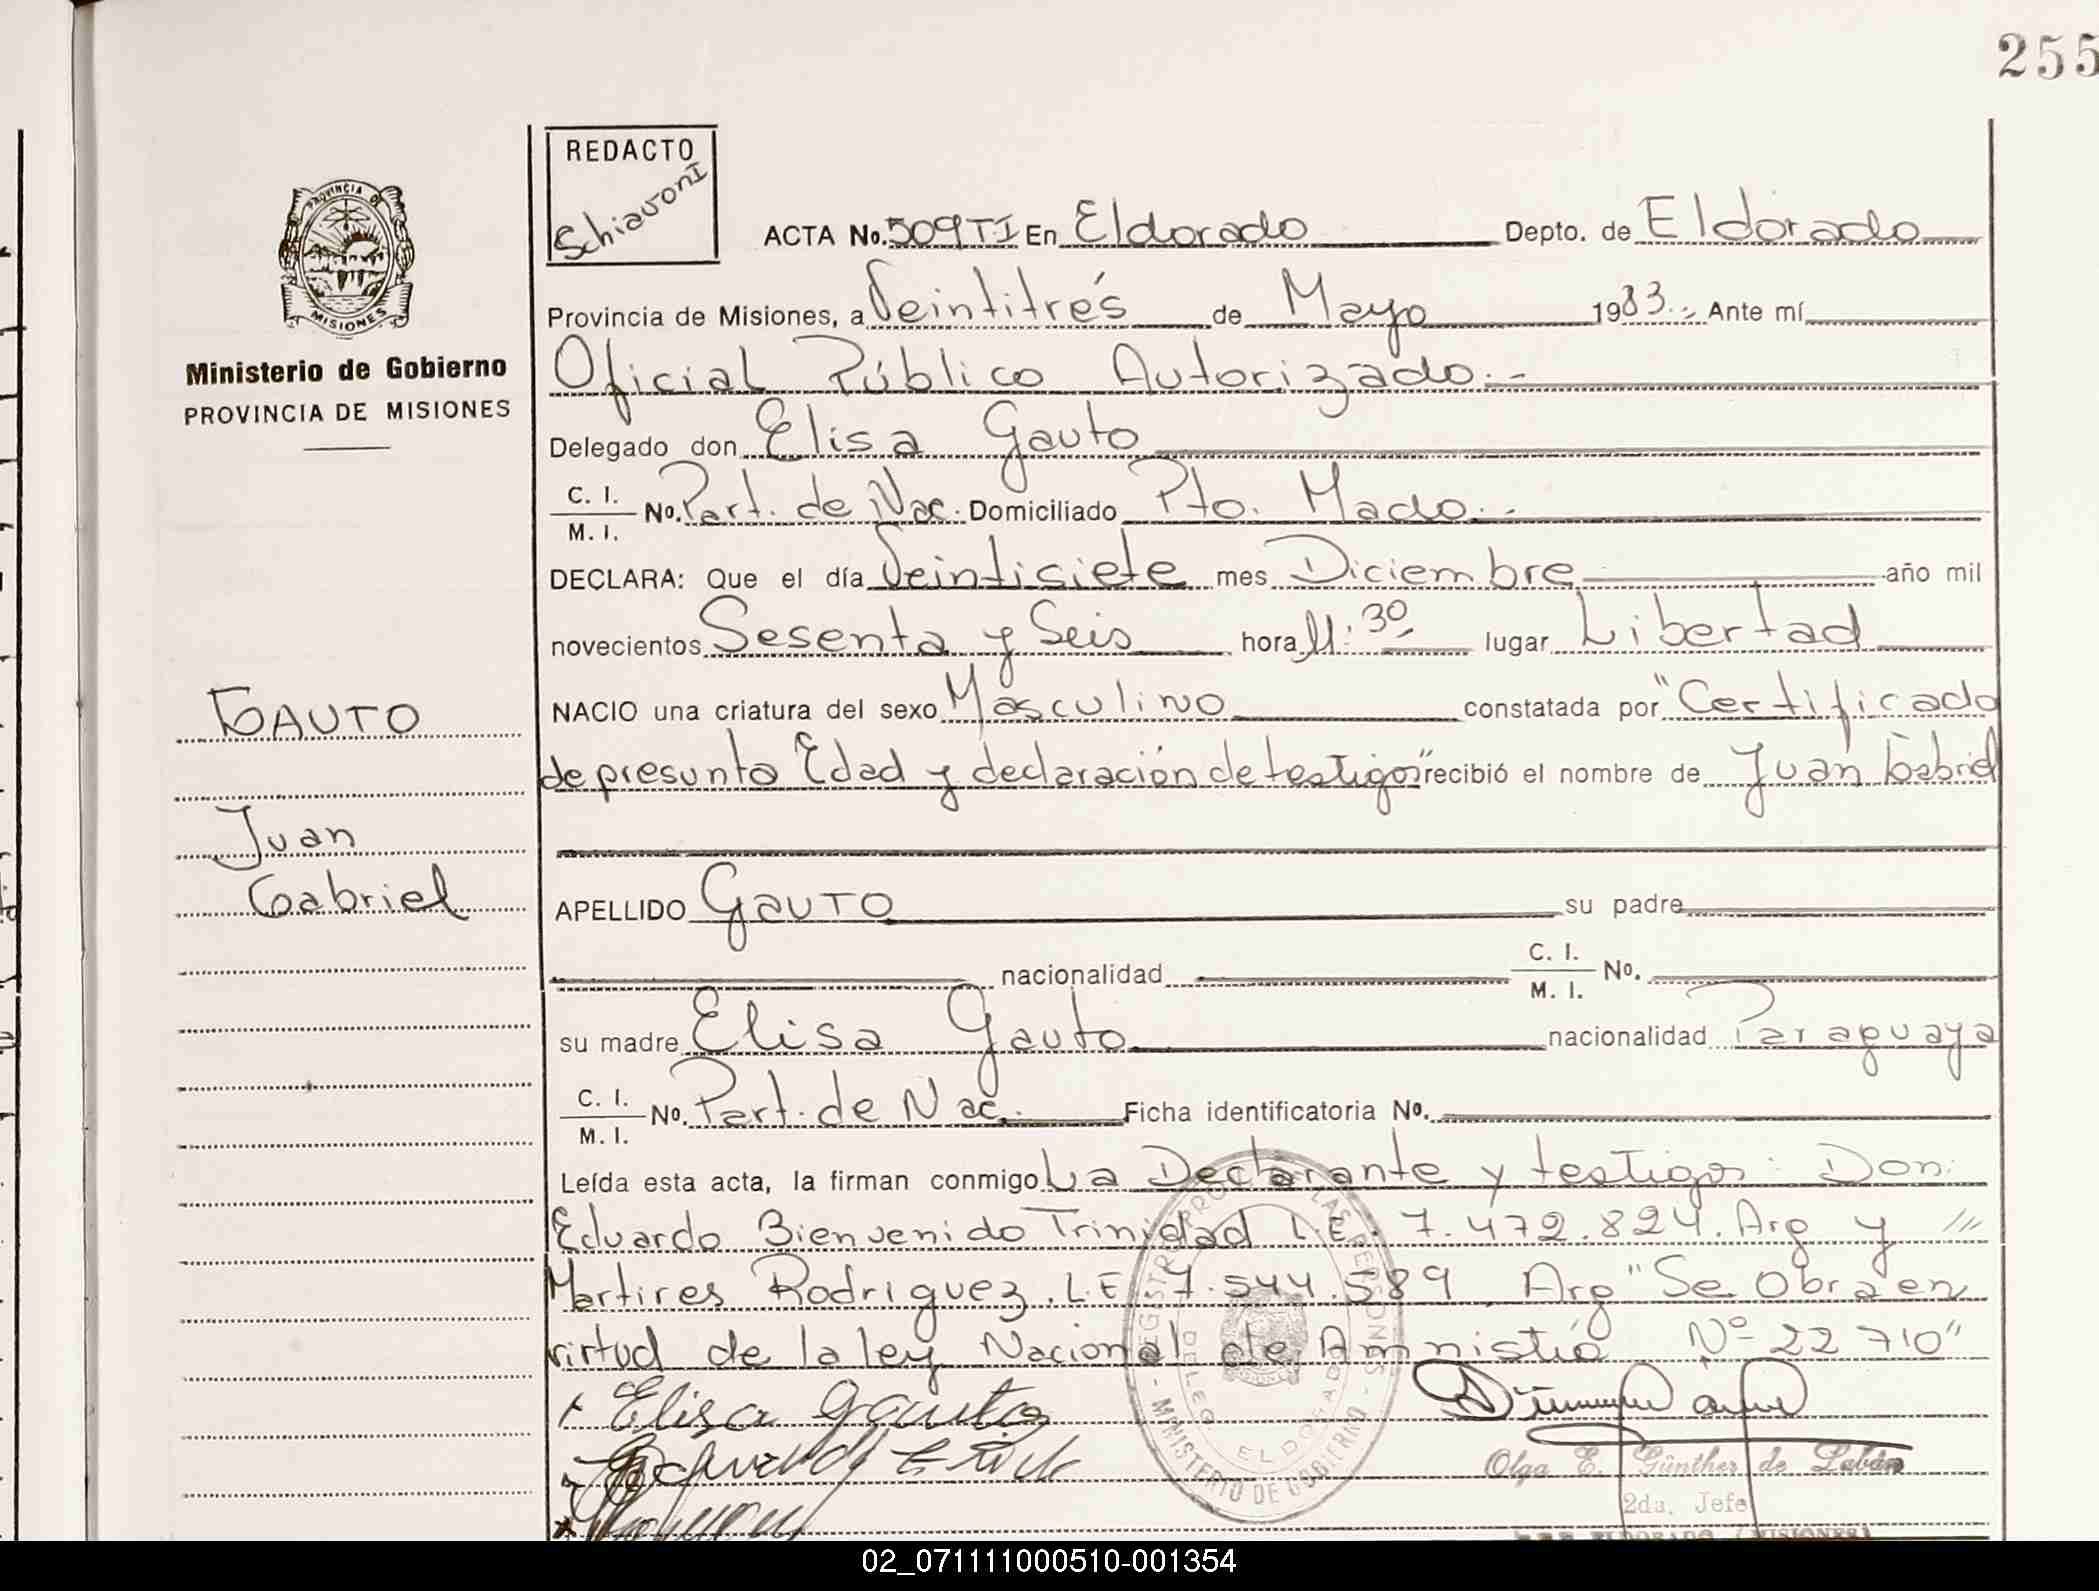 255
REDACTO
Schiavoni
PROVINCIA DE
MISIONES
Ministerio de Gobierno
PROVINCIA DE MISIONES
ACTA No. 509 TI En Eldorado Depto. de Eldorado
Provincia de Misiones, a Veintitrés de Mayo 1983.- Ante mí
Oficial Público Autorizado.-
Delegado don Elisa Gauto
C. I.
M. I. No. Part. de Nac. Domiciliado Pto. Mado.-
DECLARA: Que el día Veintisiete mes Diciembre año mil
novecientos Sesenta y Seis hora 11:30 lugar Libertad
NACIO una criatura del sexo Masculino constatada por "Certificado
de presunta Edad y declaración de testigos" recibió el nombre de Juan Gabriel
GAUTO
Juan
Gabriel
APELLIDO Gauto su padre
nacionalidad C. I.
M. I. No.
su madre Elisa Gauto nacionalidad Paraguaya
C. I.
M. I. No. Part. de Nac. Ficha identificatoria No.
Leída esta acta, la firman conmigo La Declarante y testigos: Don:
Eduardo Bienvenido Trinidad L.E. 7.472.824. Arg y ///
Martires Rodriguez. L.E. 7.544.589 Arg "Se Obra en
virtud de la ley Nacional de Amnistia Nº 22 710"
Elisa Gauto
MINISTERIO DE GOBIERNO
ELDORADO
Olga E. Günther de Labán
2da. Jefe
02_071111000510-001354